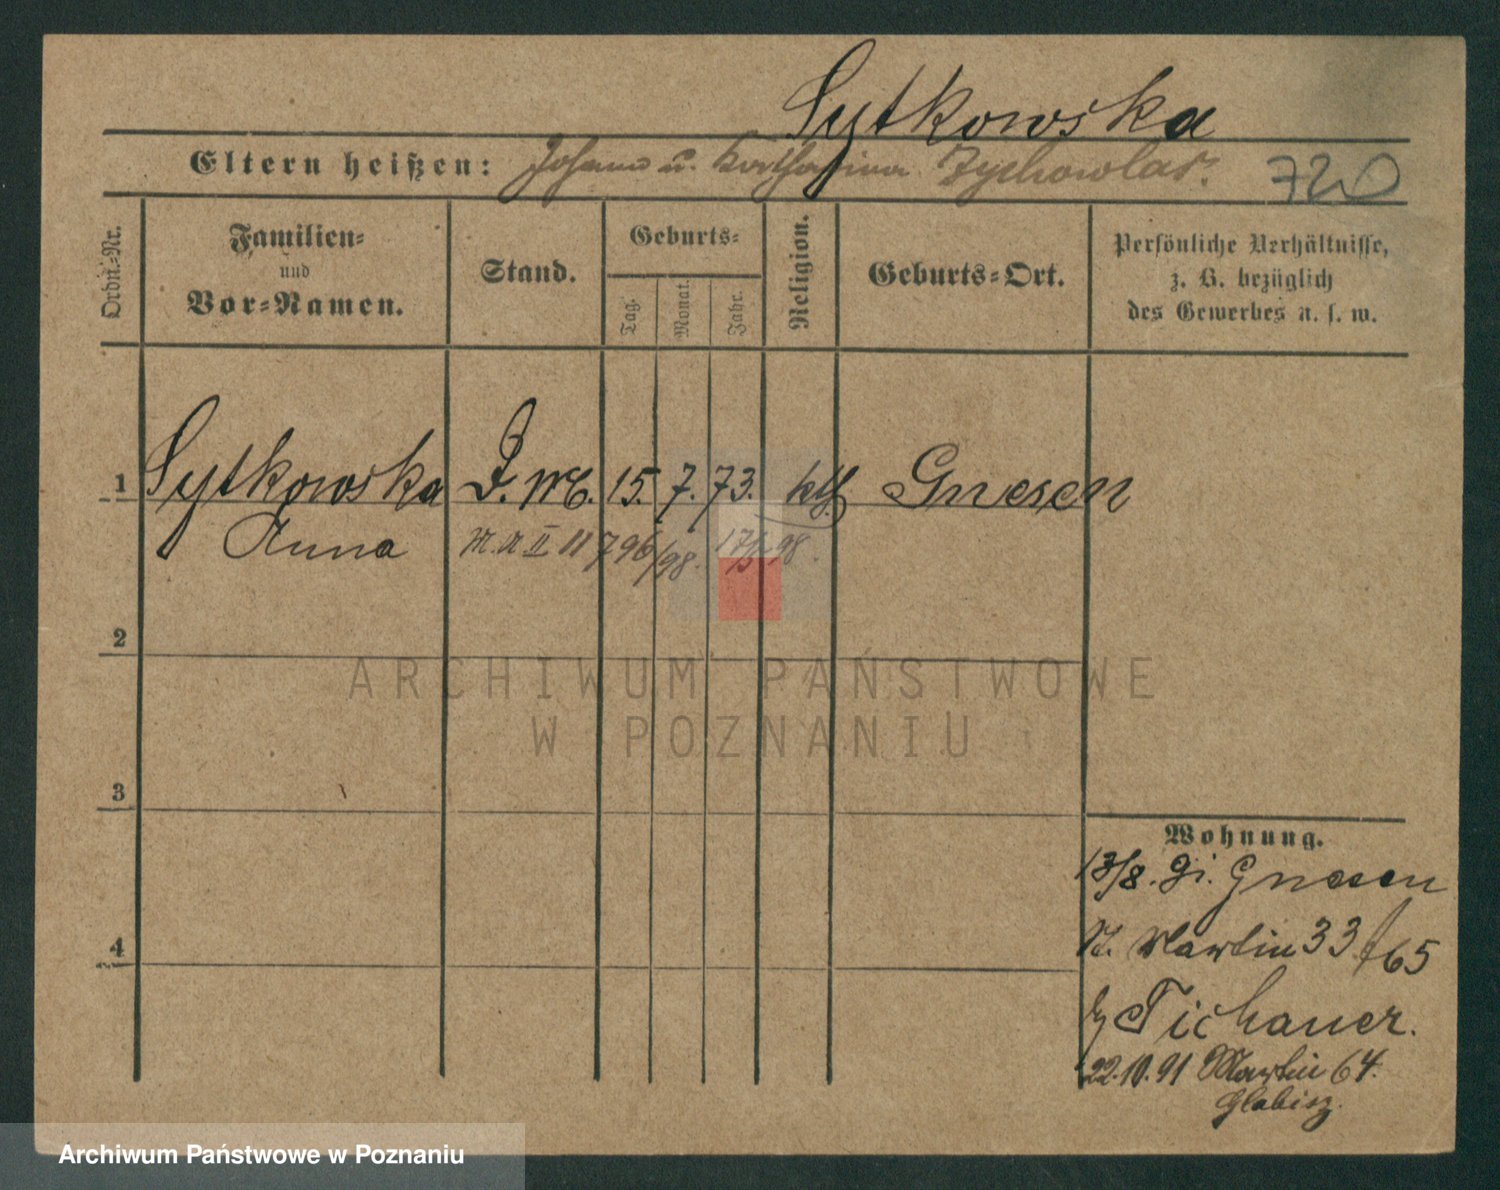 Sytkowska
Eltern heißen: Johann u. Katharina Zychowlas. 720
Ordn.-Nr.
Familien-
und
Vor-Namen.
Stand.
Geburts-
Tag.
Monat.
Jahr.
Religion.
Geburts-Ort.
Persönliche Verhältnisse,
z. B. bezüglich
des Gewerbes u. s. w.
1 Sytkowska D. M. 15. 7. 73. kth. Gnesen
Anna
2
3
4
Wohnung.
13/8. Gnesen
St. Martin 33/65
b/ Tichauer.
22.10.91 Martin 64.
Glabisz.
ARCHIWUM PAŃSTWOWE
W POZNANIU
Archiwum Państwowe w Poznaniu